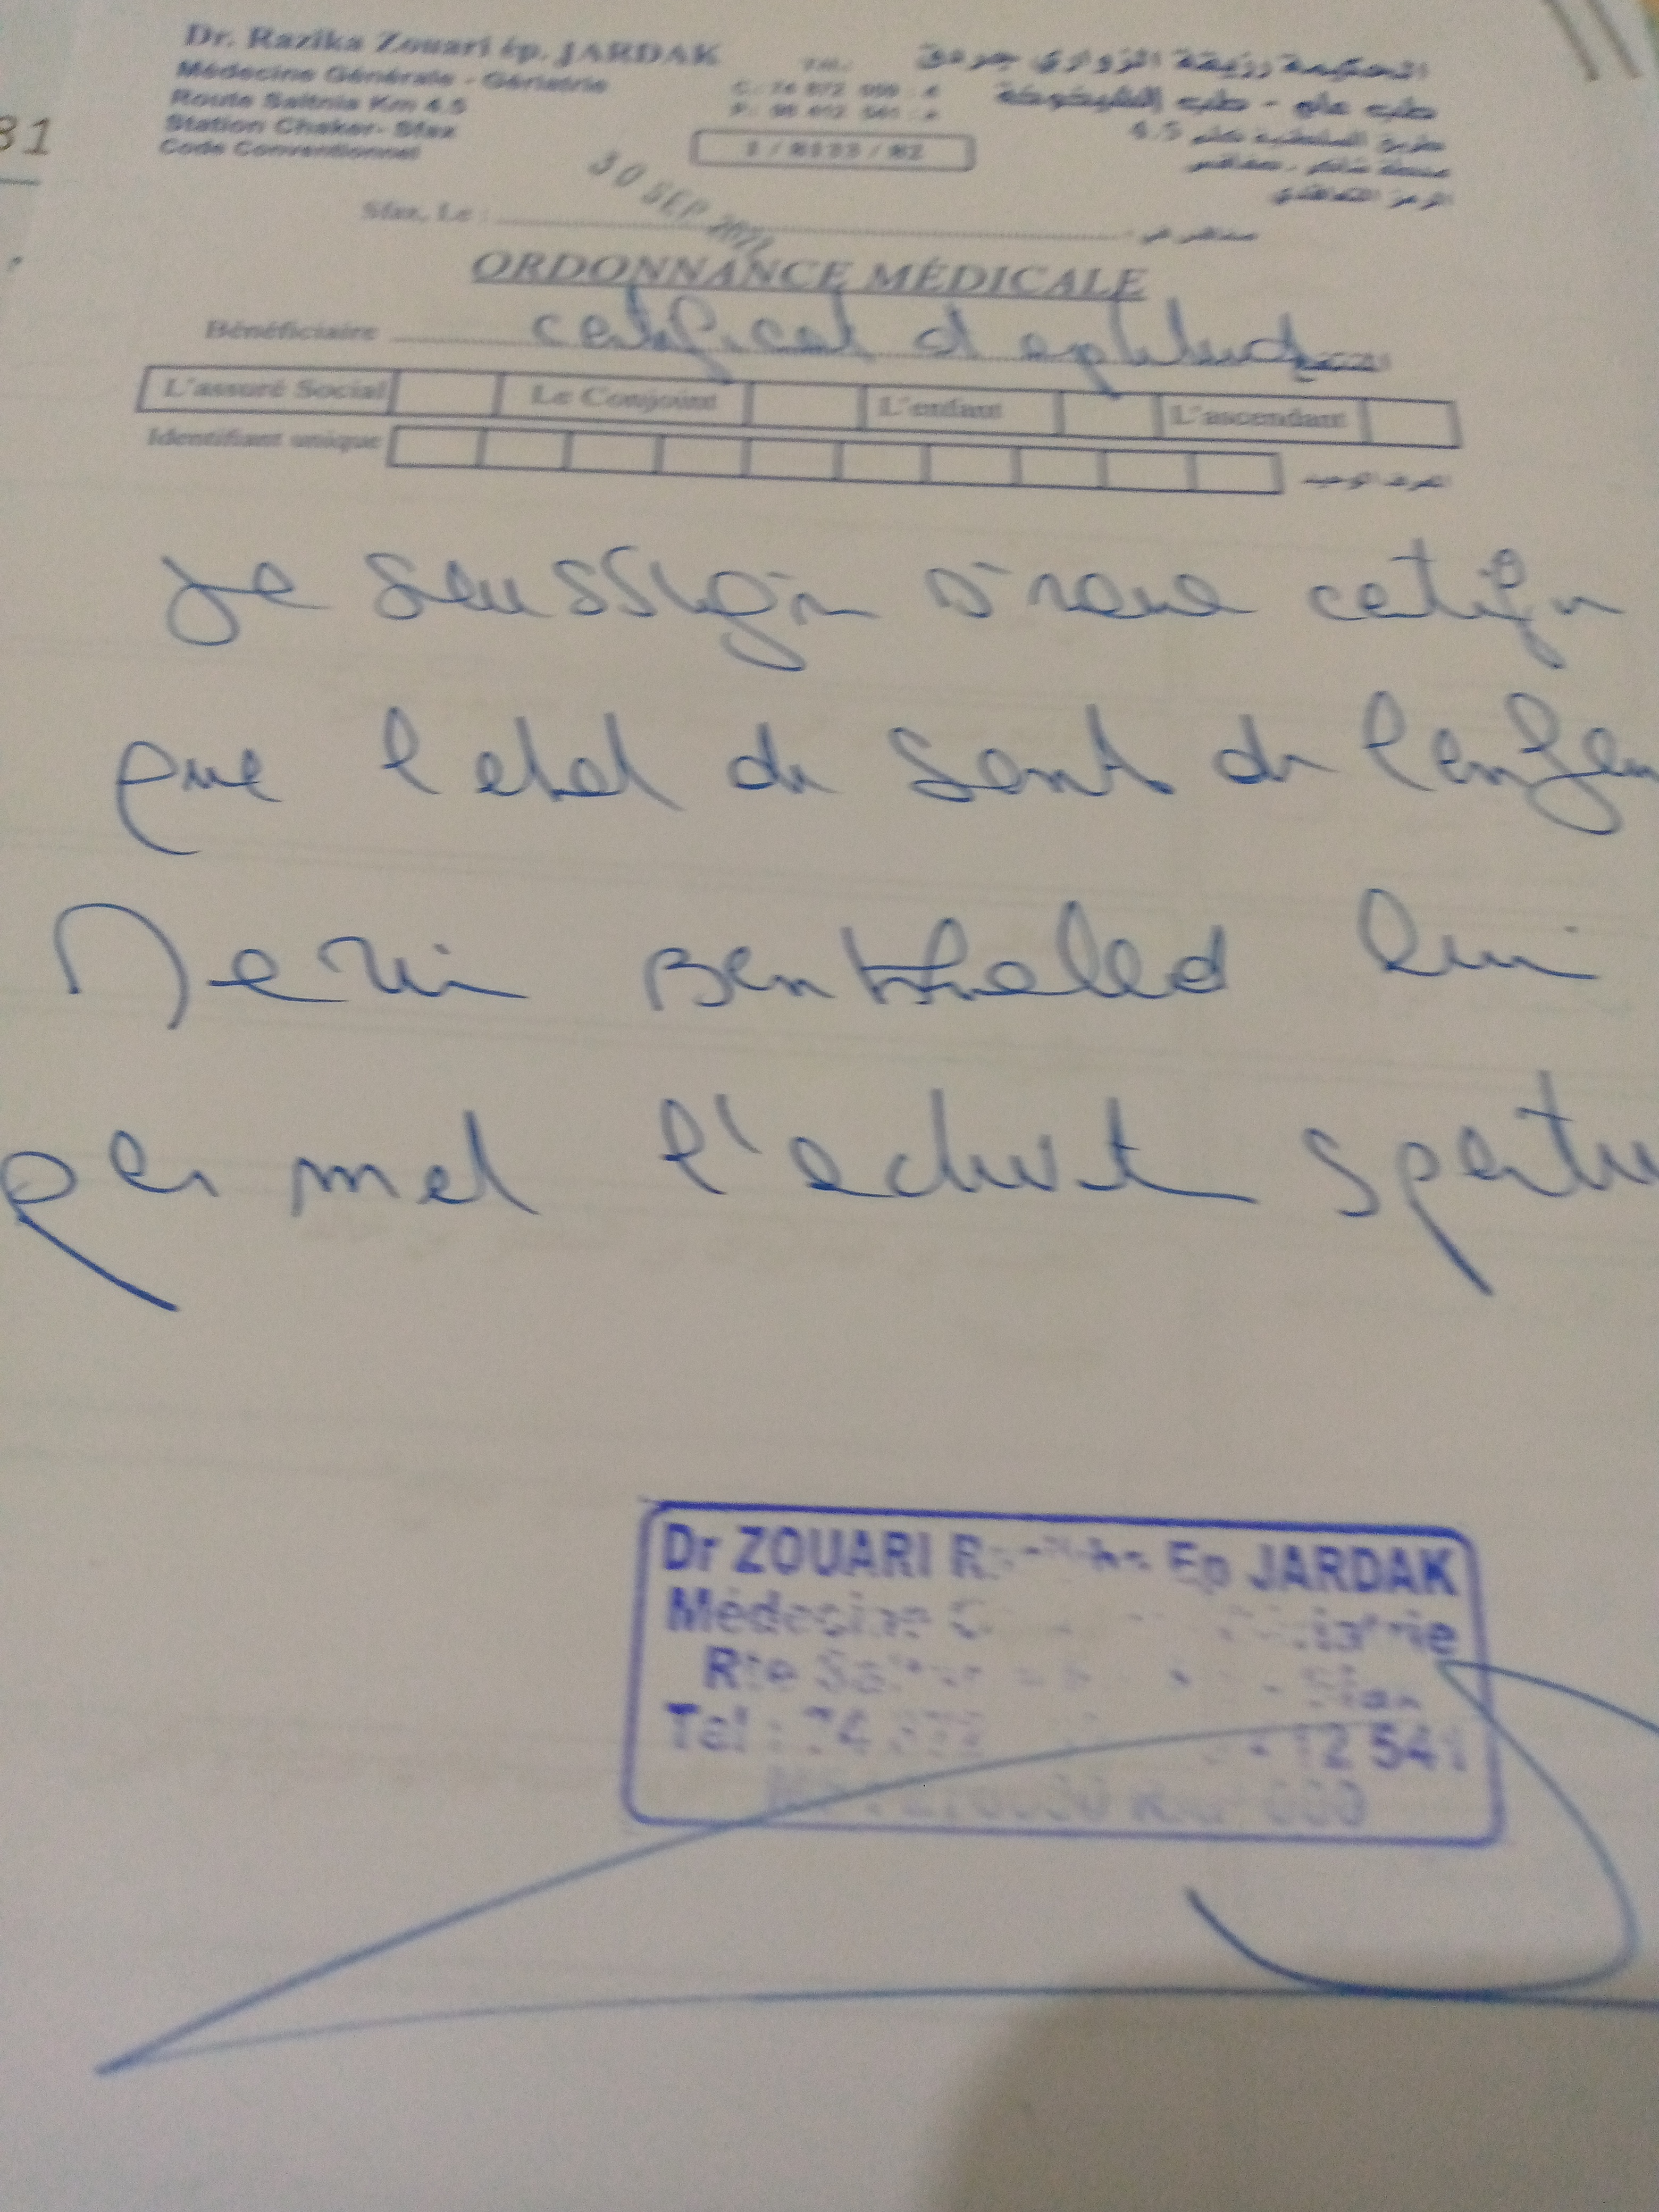 31
Dr. Razika Zouari ép. JARDAK
Médecine Générale - Gériatrie
Route Saltnia Km 4.5
Station Chaker- Sfax
Code Conventionnel
الحكيمة رزيقة الزواري جردق
طب عام - طب الشيخوخة
طريق السلطنية كلم 4.5
محطة شاكر - صفاقس
الرمز التعاقدي
1 / 8133 / 82
30 SEP
Sfax, Le : صفاقس في
ORDONNANCE MÉDICALE
Bénéficiaire certificat d aptitude المنتفع
L'assuré Social Le Conjoint L'enfant L'ascendant
Identifiant unique المعرف الوحيد
Je soussigné certifie
que l etat de santé de l'enfan
Benkhaled lui
permet l'activité sportive
Dr ZOUARI Ep JARDAK
Médecine
Rte Sfax
Tel : 74 872 12 541